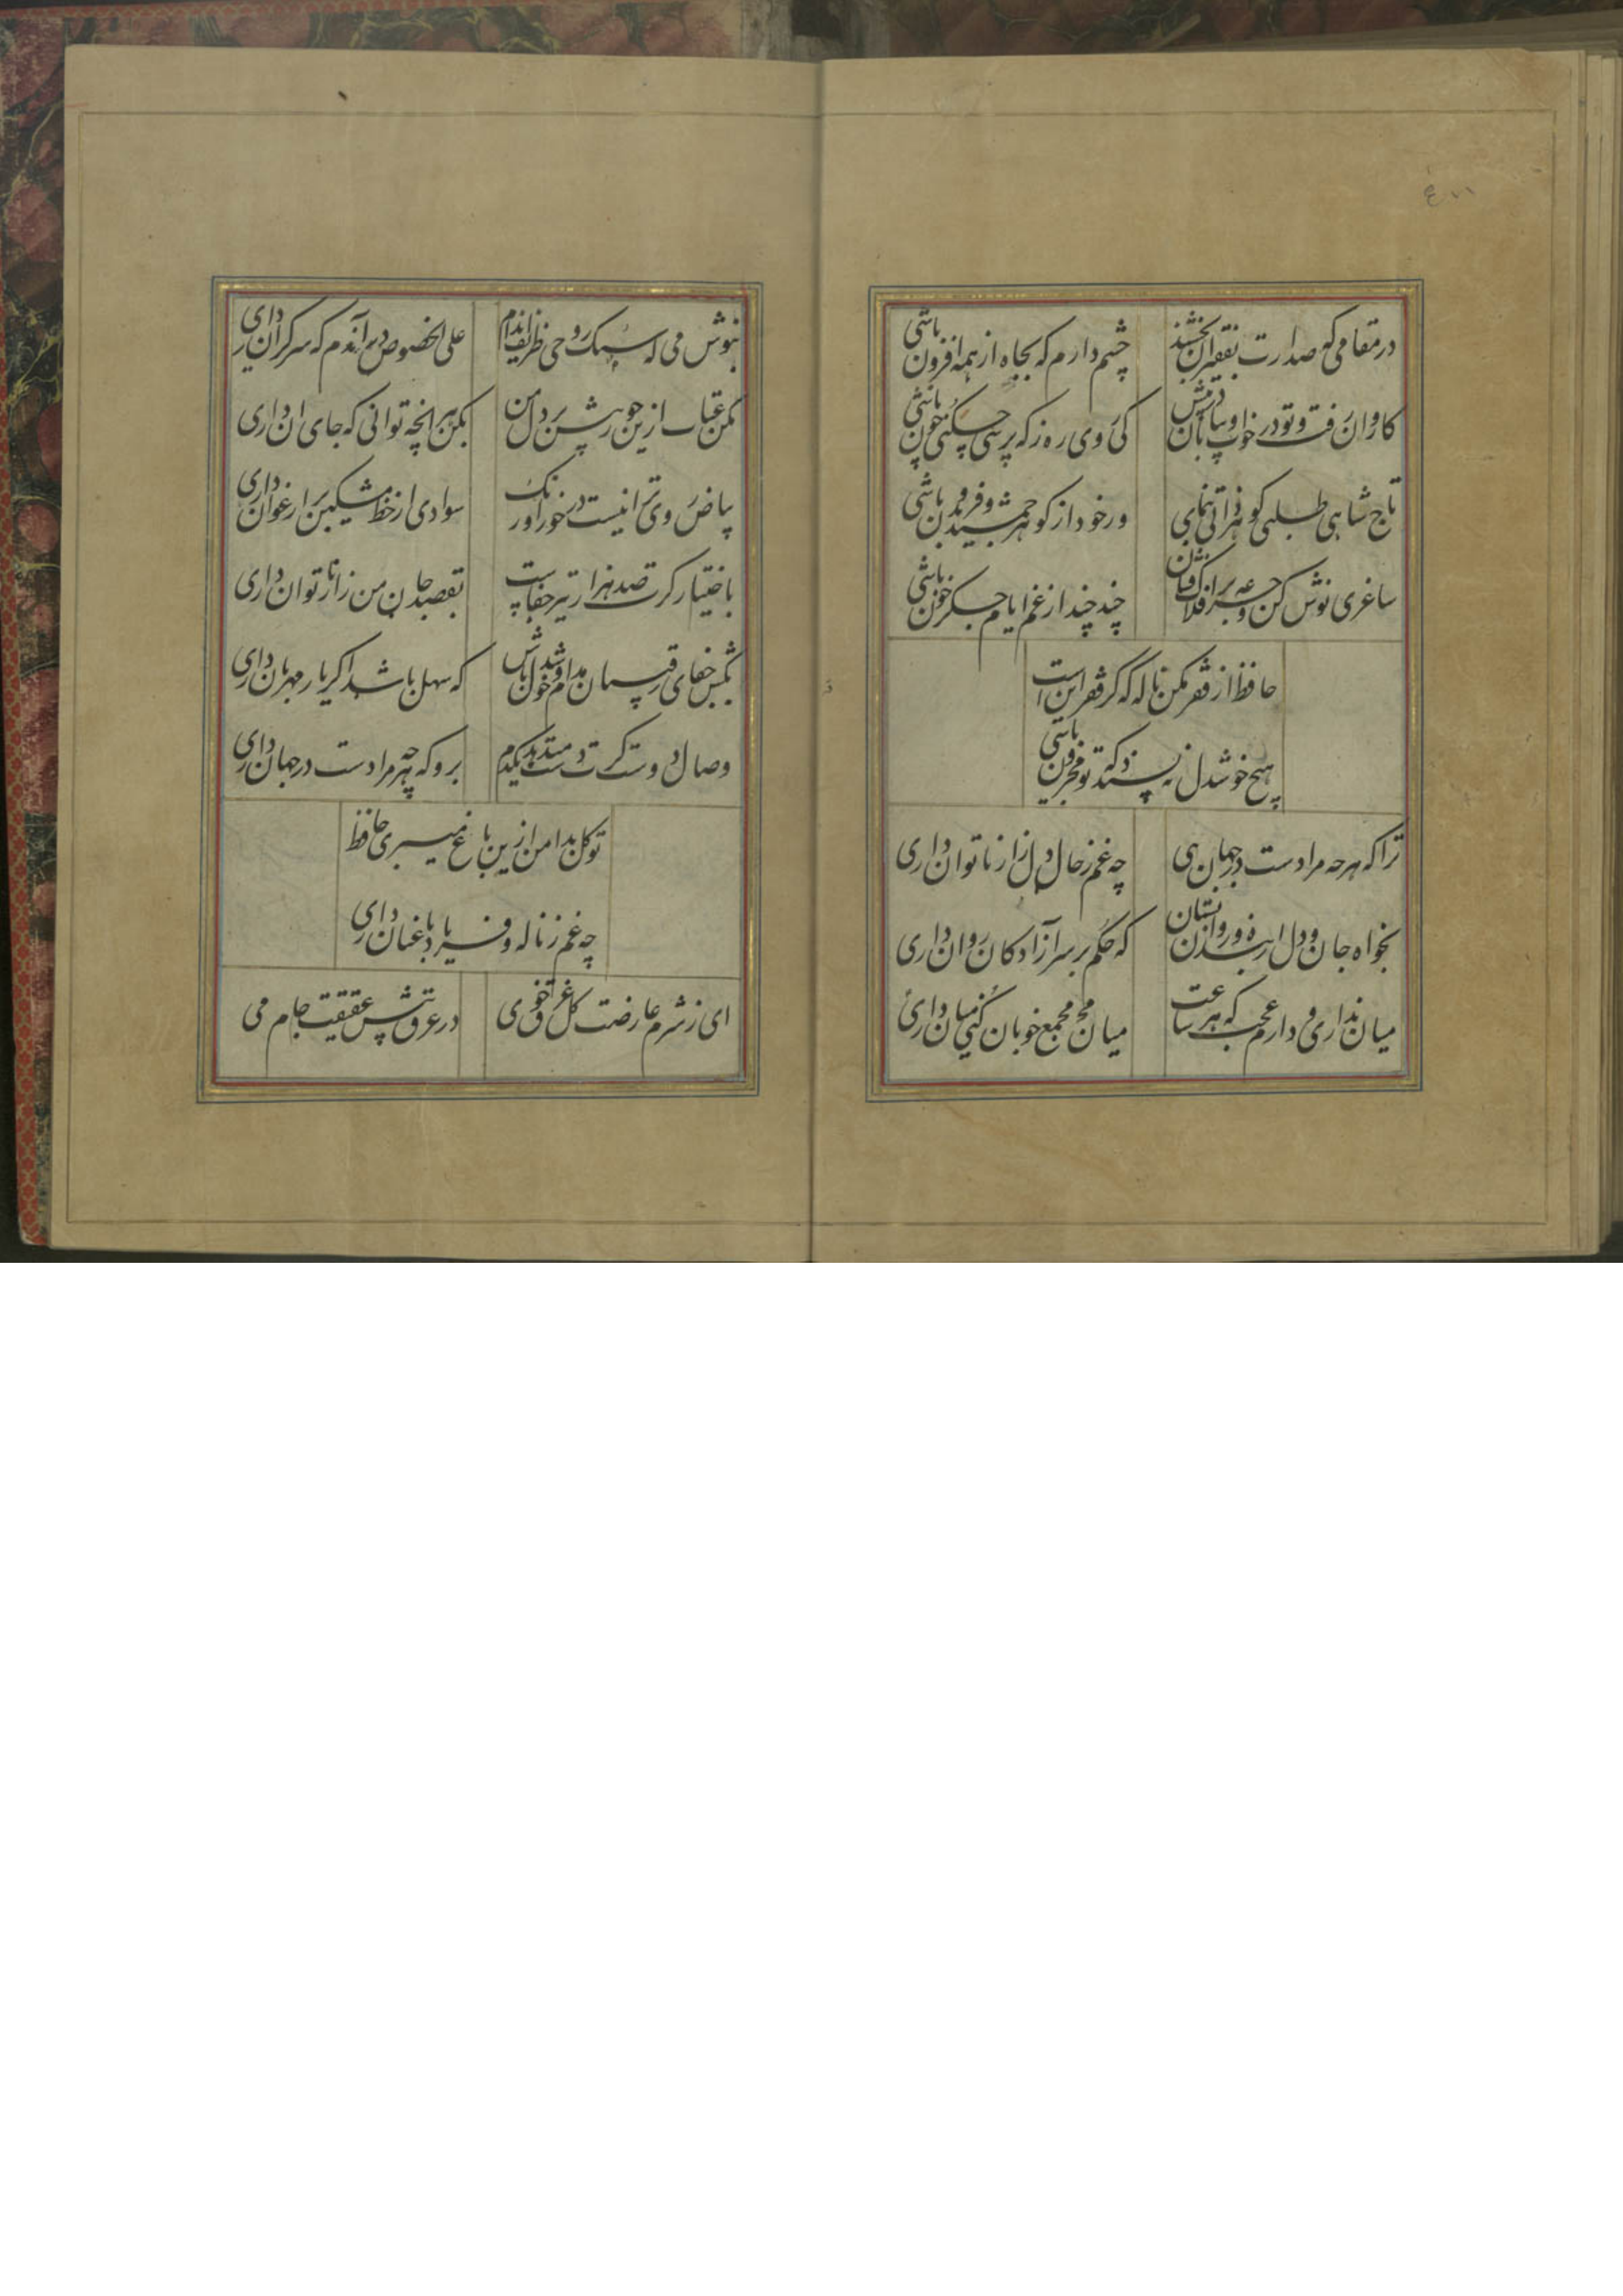 در مقامی که صدارت بفقیران بخشند
چشم دارم که بجاه از همه افزون باشی
کاروان رفت و تو در خواب و بیابان در پیش
کی روی ره ز که پرسی چکنی چون باشی
تاج شاهی طلبی گوهر ذاتی بنمای
ور خود از گوهر جمشید و فریدون باشی
ساغری نوش کن و جرعه بر افلاک فشان
چند چند از غم ایام جگر خون باشی
حافظ از فقر مکن ناله که گر فقر اینست
هیچ خوشدل نپسندد که تو محزون باشی
ترا که هرچه مرادست در جهان داری
چه غم ز حال دل زار ناتوان داری
بخواه جان و دل از بنده و روان بستان
که حکم بر سر آزادگان روان داری
میان نداری و دارم عجب که هر ساعت
میان مجمع خوبان کنی میان داری
بنوش می که سبک روحی ظریف اندام
علی الخصوص در آندم که سر گران داری
مکن عتاب ازین جور بیش بر دل من
بکن هر آنچه توانی که جای آن داری
بیاض روی ترا نیست در خور اورنگ
سوادی از خط مشکین بر ارغوان داری
باختیار گرت صد هزار تیر جفاست
بقصد جان من زار ناتوان داری
بکش جفای رقیبان مدام و خوشدل باش
که سهل باشد اگر یار مهربان داری
وصال دوست گرت دست میدهد یکدم
برو که هرچه مرادست در جهان داری
تو گل بدامن ازین باغ میبری حافظ
چه غم ز ناله و فریاد باغبان داری
ای ز شرم عارضت گل غرق خوی
در عرق پیش عقیقت جام می